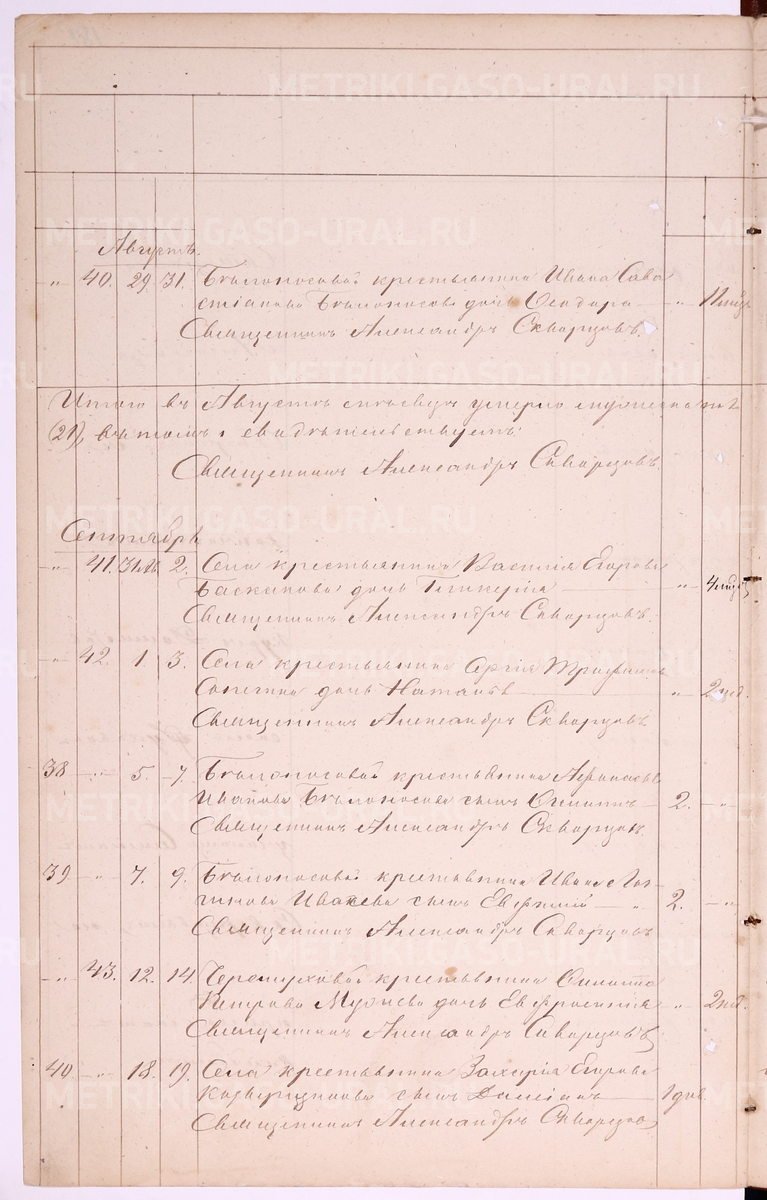 METRIKI.GASO-URAL.RU
Августъ.
„ 40. 29. 31. Бѣлоносовой крестьянина Ивана Сава
стіанова Бѣлоносова дочь Ѳеодора — „ 11 мѣс.
Священникъ Александръ Скворцовъ.
Итого въ Августѣ мѣсяцѣ умерло
(21), въ томъ и свидѣтельствуемъ:
Священникъ Александръ Скворцовъ.
Сентябрь
„ 41. 31 Ав. 2. Села крестьянина Василія Егорова
дочь Гликерія — „ 4 мѣс.
Священникъ Александръ Скворцовъ.
„ 42. 1. 3. Села крестьянина Сергія Трофимова
дочь Наталія — „ 2 нед.
Священникъ Александръ Скворцовъ
38 „ 5. 7. Бѣлоносовой крестьянина Афанасія
Иванова Бѣлоносова сынъ — 2. „
Священникъ Александръ Скворцовъ.
39 „ 7. 9. Бѣлоносовой крестьянина Ивана Лог-
гинова Ивачева сынъ Евфимій — „ 2. „
Священникъ Александръ Скворцовъ
„ 43. 12. 14. Черемуховой крестьянина Филиппа
Петрова дочь Евфросинія „ 2 нед.
Священникъ Александръ Скворцовъ
40 „ 18. 19. Села крестьянина Захарія Егорова
сынъ Даміанъ — 1 дов.
Священникъ Александръ Скворцовъ